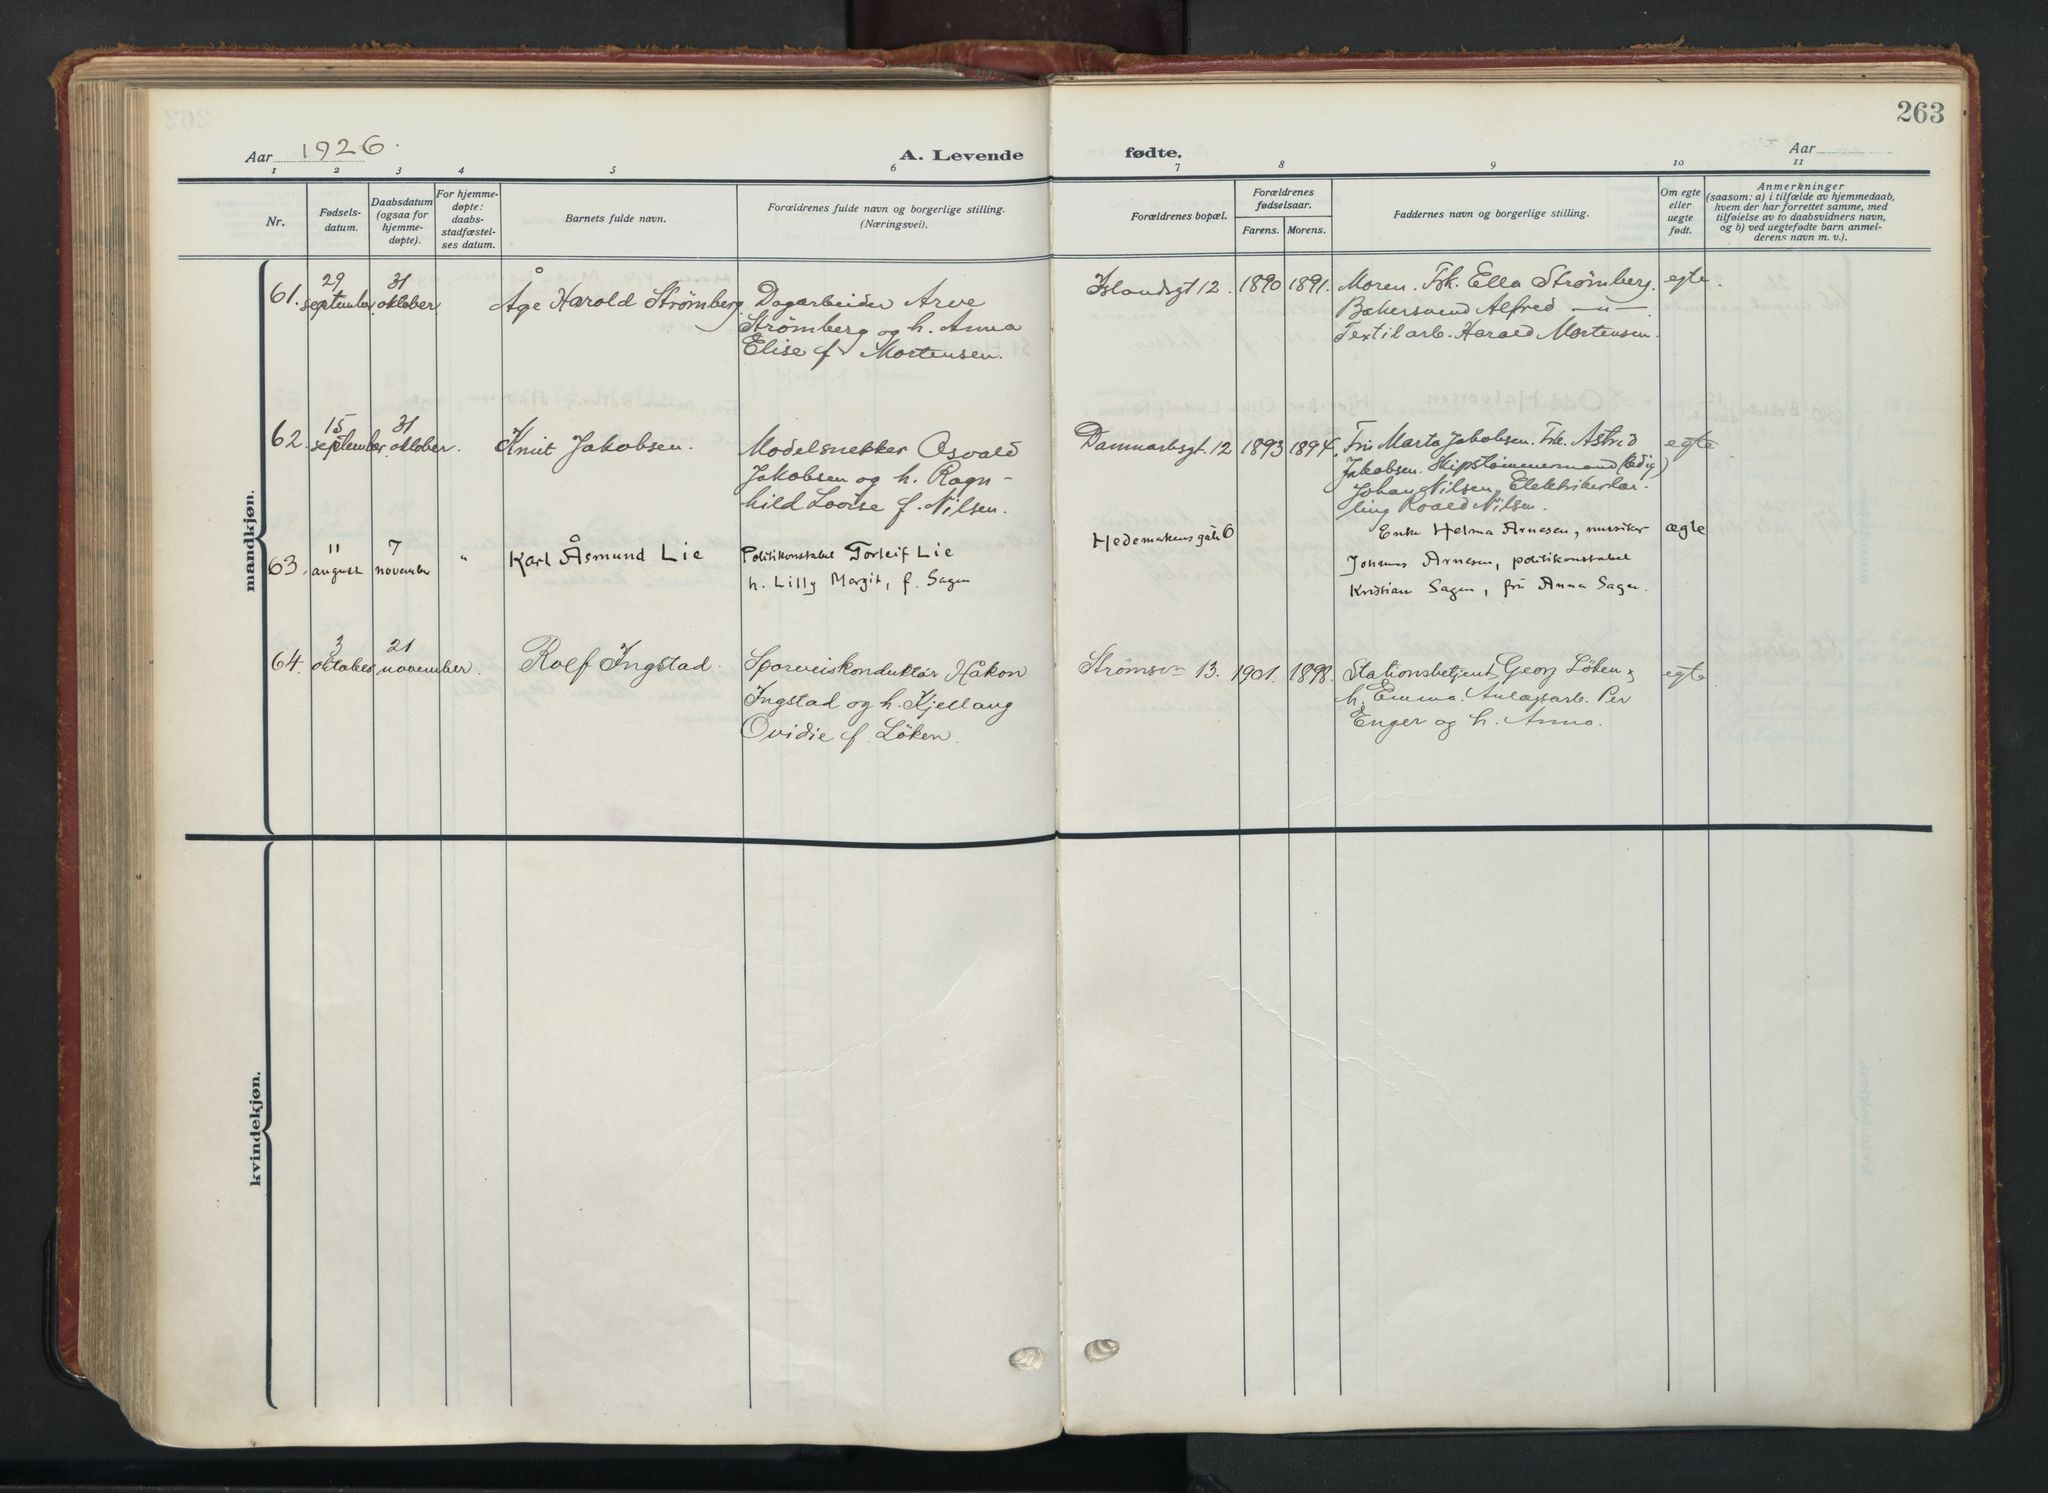 263
Aar 1926.
A. Levende fødte.
Aar
1 2 3 4 5 6 7 8 9 10 11
Nr.
Fødsels-
datum.
Daabsdatum
(ogsaa for
hjemme-
døpte).
For hjemme-
døpte:
daabs-
stadfæstel-
ses datum.
Barnets fulde navn.
Forældrenes fulde navn og borgerlige stilling.
(Næringsvei).
Forældrenes bopæl.
Forældrenes
fødselsaar.
Farens. Morens.
Faddernes navn og borgerlige stilling.
Om egte
eller
uegte
født.
Anmerkninger
(saasom: a) i tilfælde av hjemmedaab,
hvem der har forrettet samme, med
tilføielse av to daabsvidners navn,
og b) ved uegtefødte barn anmel-
derens navn m. v.).
mandkjøn.
61.
29
september.
31
oktober.
Åge Harold Strømberg.
Dagarbeider Arve
Strømberg og h. Anna
Elise f. Mortensen.
Islandsgt 12.
1890
1891.
Moren. Frk. Ella Strømberg.
Bakersvend Alfred —„—
Textilarb. Harald Mortensen.
egte.
62.
15
september.
31
oktober.
Knut Jakobsen.
Modelsnekker Osvald
Jakobsen og h. Ragn-
hild Lovise f. Nilsen.
Danmarksgt. 12
1893
1894.
Fru Marta Jakobsen. Frk. Astrid
Jakobsen. Skipstømmermand (ledig)
Johan Nilsen, Elektrikerlær-
ling Roald Nilsen.
egte
63.
11
august
7
november
"
Karl Åsmund Lie
Politikonstabel Torleif Lie
h. Lilly Margit, f. Sagen
Hedemarkens gate 6
Enke Helma Arnesen, mussiker
Johannes Arnesen, politikonstabel
Kristian Sagen, fru Anna Sagen.
ægte
64.
3
oktober
21
november.
Rolf Ingstad.
Sporveiskonduktør Håkon
Ingstad og h. Kjellaug
Ovidie f. Løken.
Strømsvn 13.
1901.
1898.
Stationsbetjent Georg Løken &
h. Emma. Anlægsarb. Per
Enger og h. Anna.
egte
kvindekjøn.